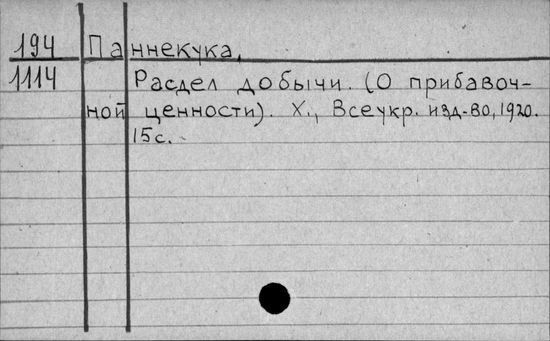 194 Паннекука,
1114 Расдел добычи. (О прибавоч-
ной ценности). Х., Всеукр. изд-во, 1920.
15с.